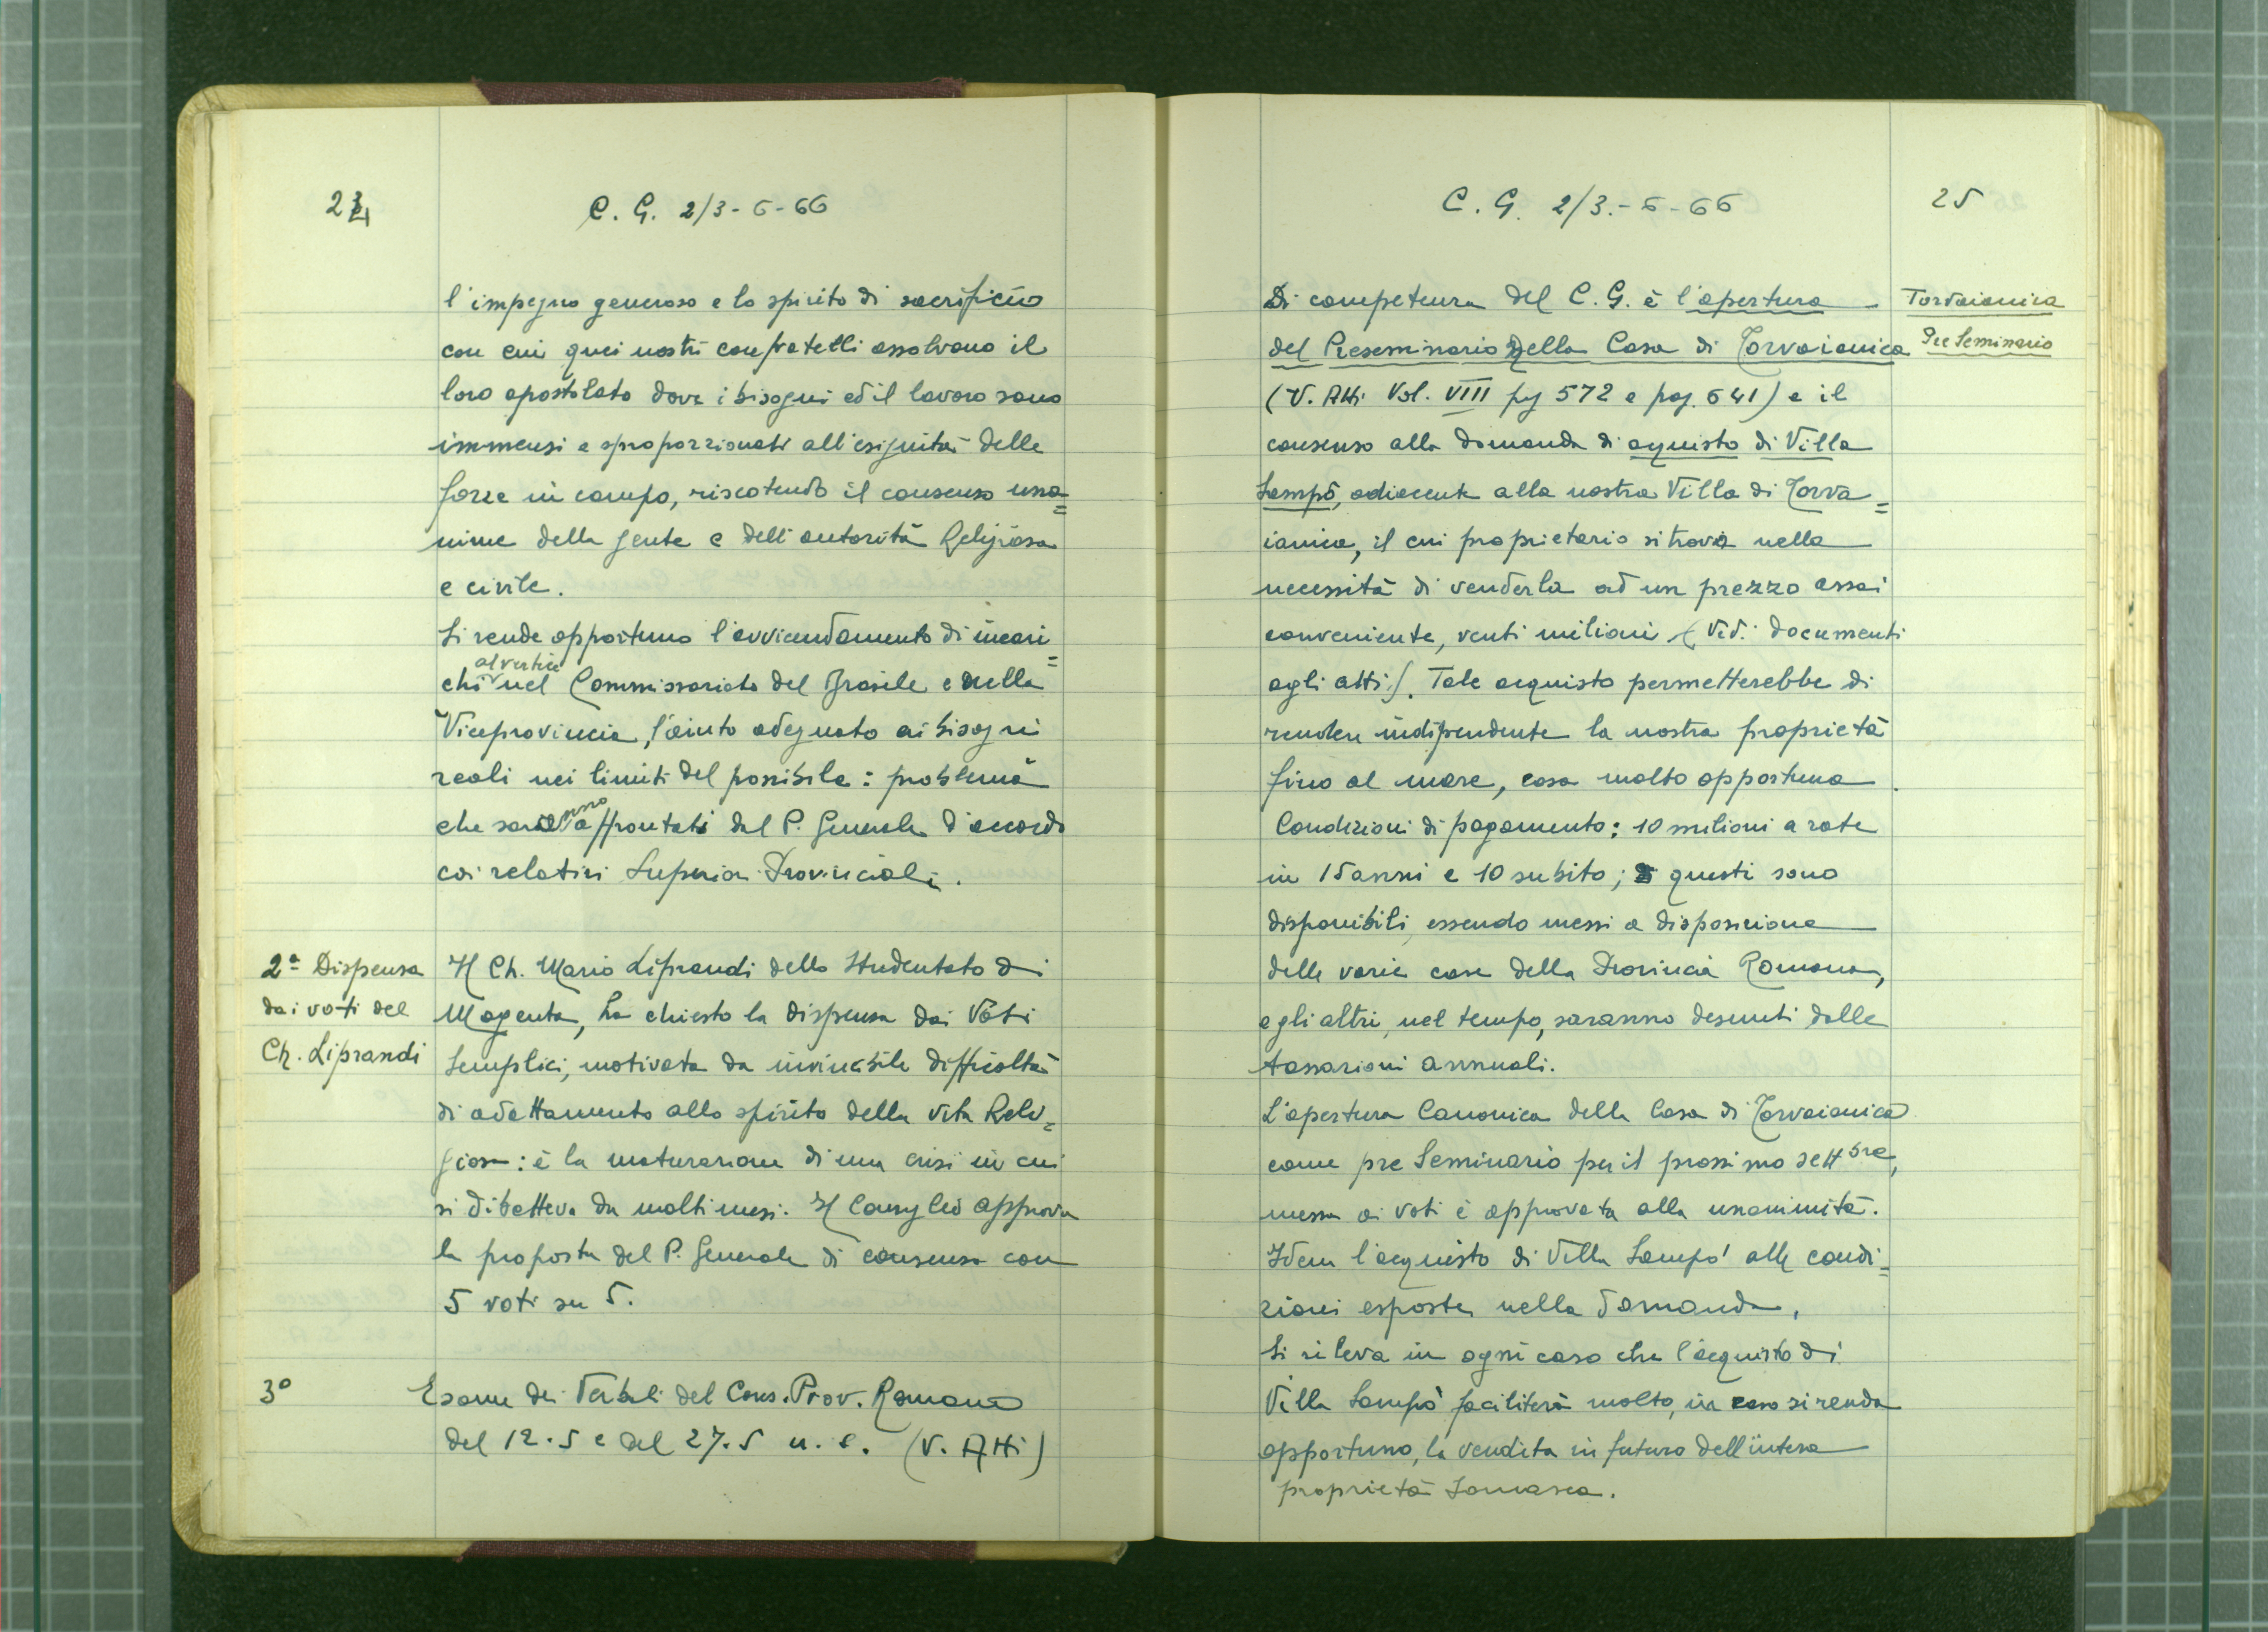 24
C. G. 2/3-6-66
l'impegno generoso e lo spirito di sacrificio
con cui quei nostri confratelli assolvono il
loro apostolato dove i bisogni ed il lavoro sono
immensi e sproporzionati all'esiguità delle
forze in campo, riscotendo il consenso una=
nime della gente e dell'autorità Religiosa
e civile.
Si rende opportuno l'avvicendamento di incari=
chi al vertice nel Commissariato del Brasile e nella
Viceprovincia, l'aiuto adeguato ai bisogni
reali nei limiti del possibile: problema
che saranno affrontati dal P. Generale d'accordo
coi relativi Superiori Provinciali.
2ª Dispensa
dai voti del
Ch. Liprandi
Il Ch. Mario Liprandi dello Studentato di
Magenta, ha chiesto la dispensa dai Voti
Semplici, motivata da invincibile difficoltà
di adattamento allo spirito della vita Reli=
giosa: è la maturazione di una crisi in cui
si dibatteva da molti mesi. Il Consiglio approva
la proposta del P. Generale di consenso con
5 voti su 5.
3°
Esame dei Verbali del Cons. Prov. Romano
del 12.5 e del 27.5 u. s. (V. Atti)
C. G. 2/3.-6-66
25
Di competenza del C. G. è l'apertura
del Preseminario della Casa di Torvaianica
(V. Atti Vol. VIII pg 572 e pag. 641) e il
consenso alla domanda di aquisto di Villa
Sampò, adiacente alla nostra Villa di Torva=
ianica, il cui proprietario si trova nella
necessità di venderla ad un prezzo assai
conveniente, venti milioni (Ved. documenti
agli atti). Tale acquisto permetterebbe di
rendere indipendente la nostra proprietà
fino al mare, cosa molto opportuna.
Condizioni di pagamento: 10 milioni a rate
in 15 anni e 10 subito; questi sono
disponibili, essendo messi a disposizione
delle varie case della Provincia Romana,
e gli altri, nel tempo, saranno desunti dalle
tassazioni annuali.
L'apertura Canonica della Casa di Torvaianica
come pre Seminario per il prossimo settbre,
messa ai voti è approvata alla unanimità.
Idem l'acquisto di Villa Sampò alle condi=
zioni esposte nella domanda.
Si rileva in ogni caso che l'acquisto di
Villa Sampò faciliterà molto, in caso si renda
opportuno, la vendita in futuro dell'intera
proprietà Somasca.
Torvaianica
Pre Seminario